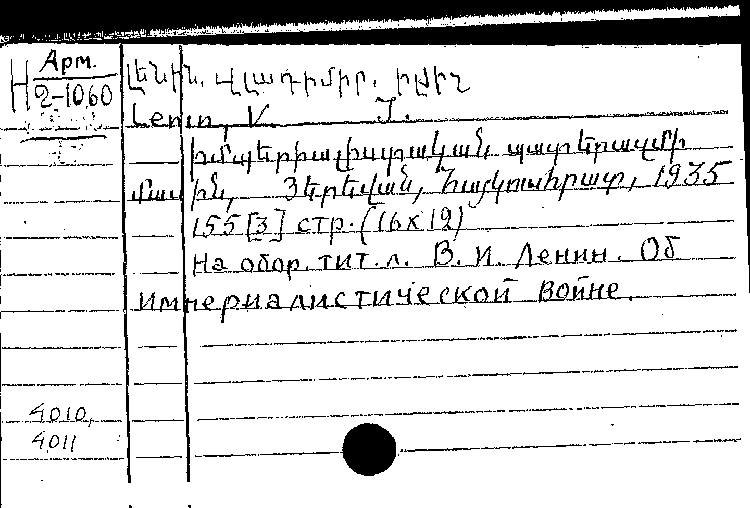 Арм.
Н 2-1060
Լենին, Վլադիմիր. Իլիչ
Lenin, V. J.
Իմպերիալիստական պատերազմի
մասին, Յերեվան, Հայկուսհրատ, 1935
155 [3] стр. (16x12)
На обор. тит. л. В. И. Ленин. Об
империалистической войне.
4010,
4011